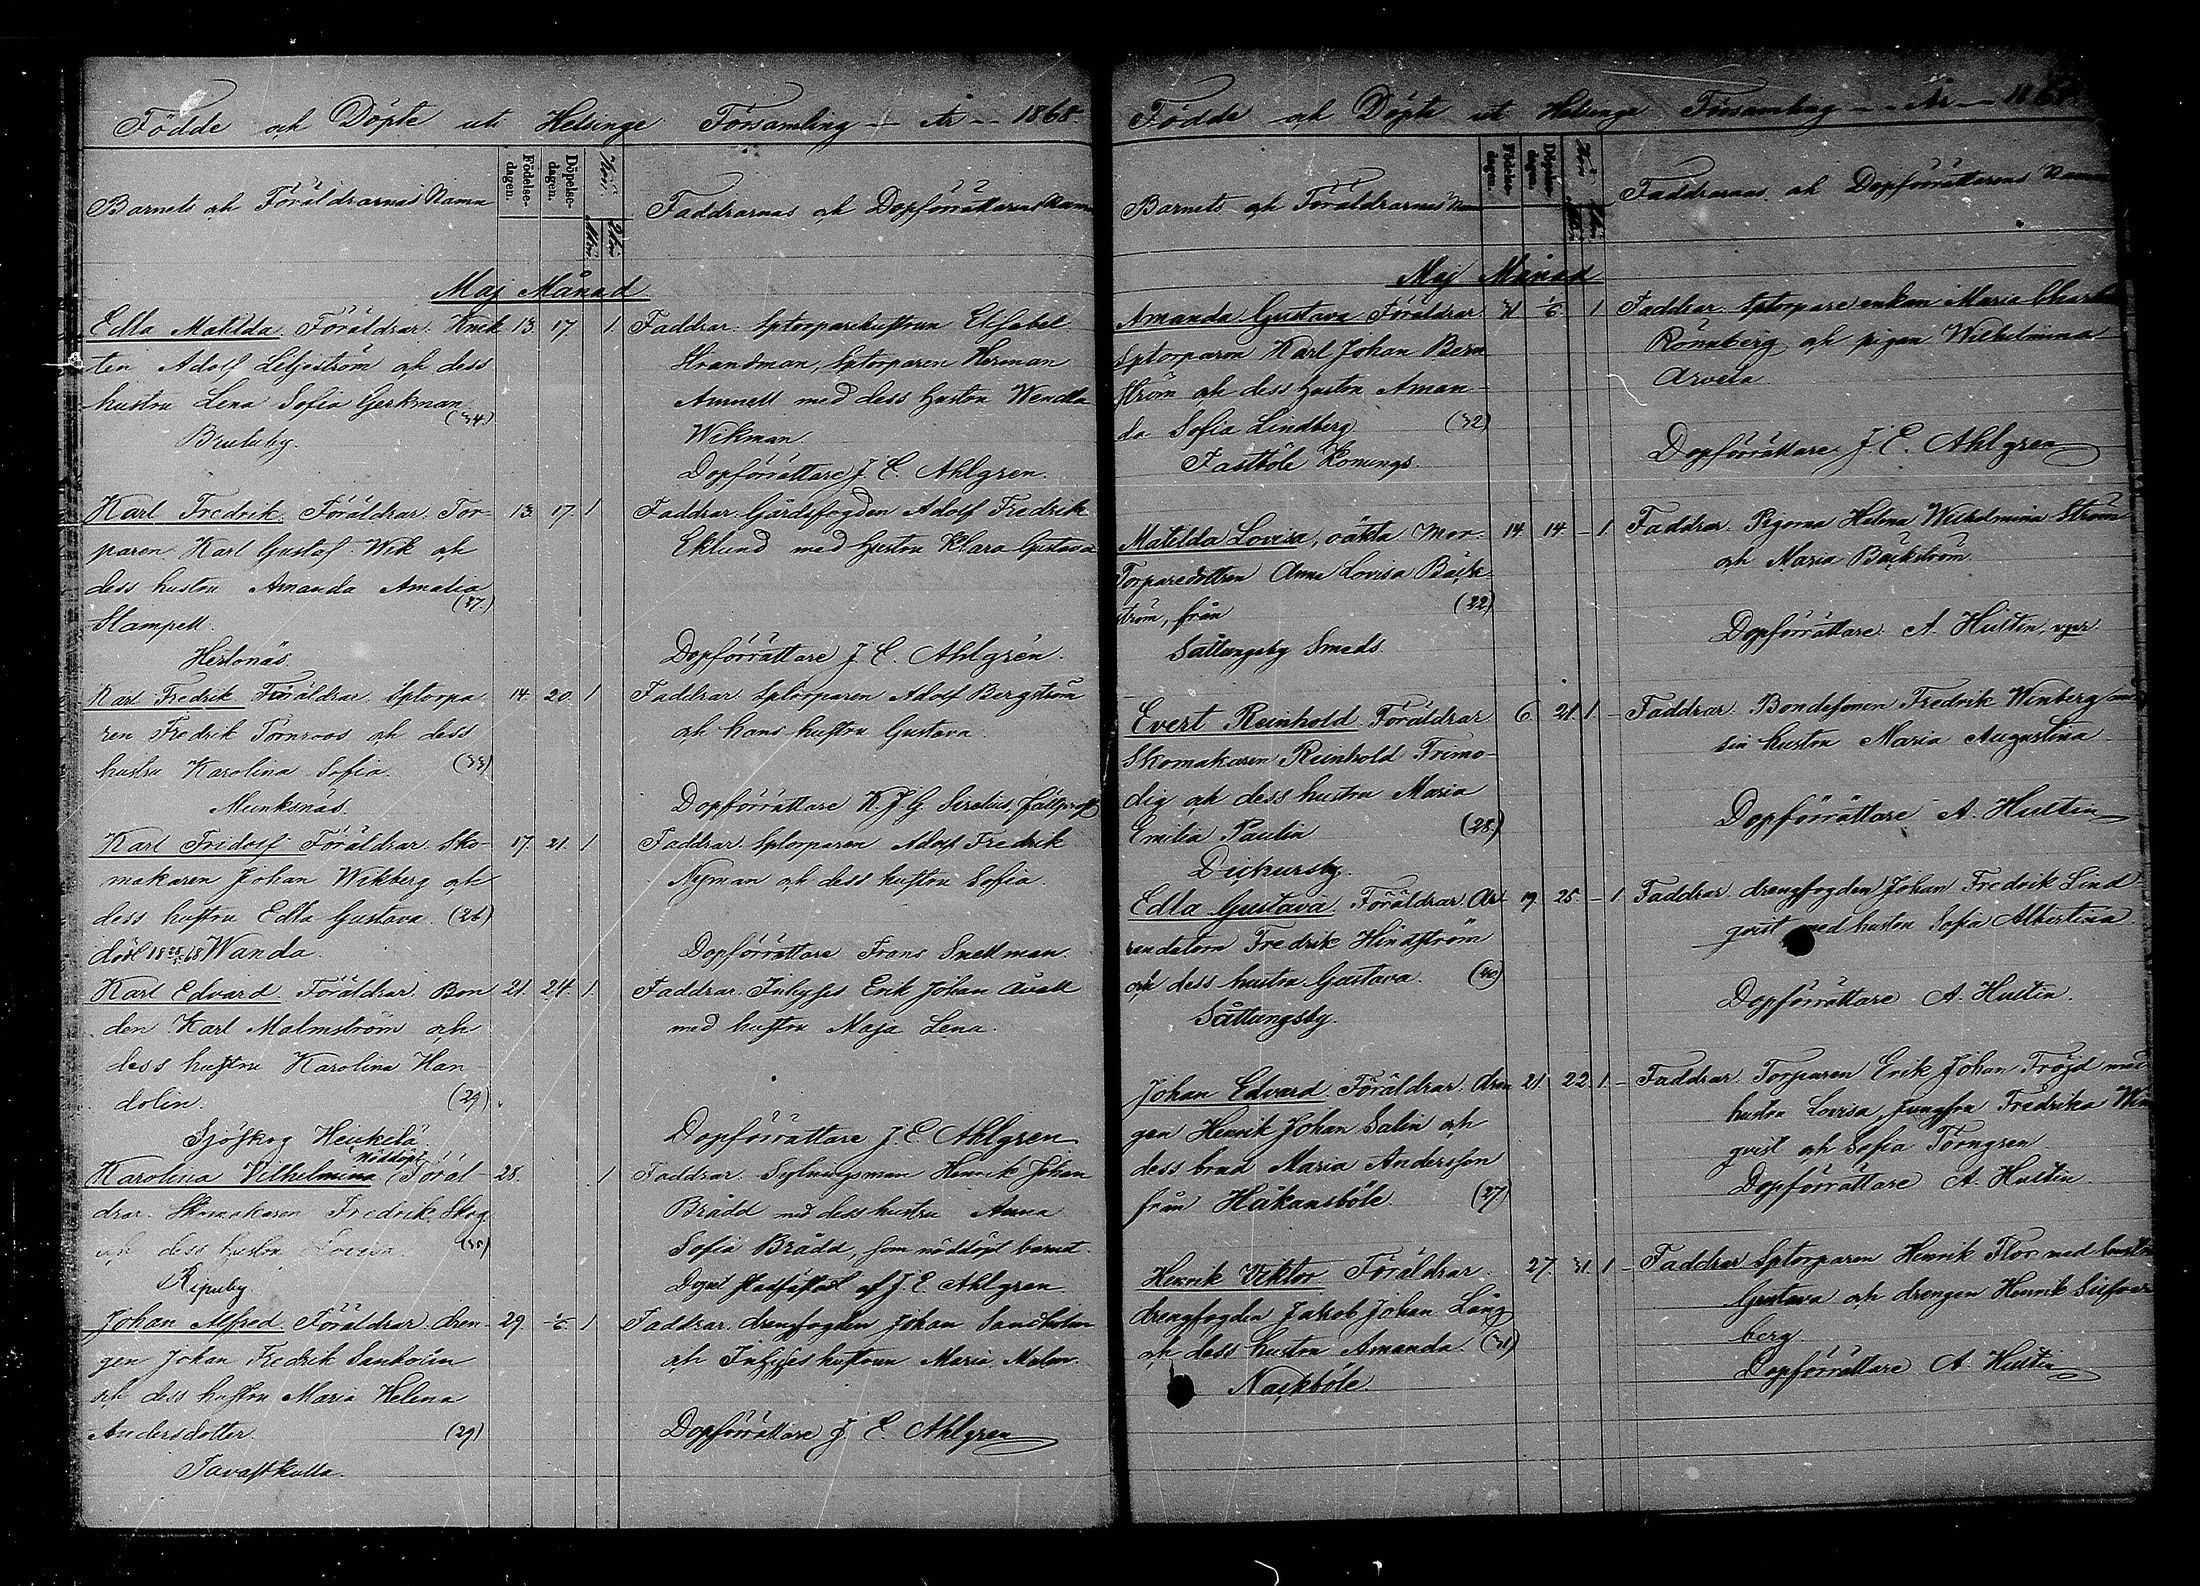 Födde och Döpte uti Helsinge Församling — År — 1868
Barnets och Föräldrarnas Namn
Födelse-dagen.
Döpelse-dagen.
Kön.
Mkön
Qkön
Faddrarnas och Dopförrättarens Namn
Maj Månad
Edla Matilda Föräldrar. Knek 13 17 1 Faddrar. Sptorparehustrun Elisabet
ten Adolf Liljeström och dess Strandman, Sptorparen Herman
hustru Lena Sofia Gerkman (34) Ammell med dess hustru Wendla
Wikman.
Dopförrättare J. E. Ahlgren.
Karl Fredrik. Föräldrar. Tor- 13. 17. 1 Faddrar. Gårdsfogden Adolf Fredrik
paren Karl Gustaf Wik och Eklund med hustru Klara Gustava
dess hustru Amanda Amalia (37.)
Stampell.
Hertonäs Dopförrättare J. E. Ahlgren.
Karl Fredrik Föräldrar. Sptorpa 14. 20. 1 Faddrar. Sptorparen Adolf Bergström
ren Fredrik Törnroos och dess och hans hustru Gustava.
hustru Karolina Sofia. (33)
Munksnäs. Dopförrättare K. J. G. Sirelius,
Karl Fridolf Föräldrar. Sko- 17. 21. 1 Faddrar. Sptorparen Adolf Fredrik
makaren Johan Wikberg och Nyman och dess hustru Sofia.
dess hustru Edla Gustava (26)
Wanda. Dopförrättare Frans Snellman.
Karl Edvard Föräldrar. Bon 21. 24. 1. Faddrar. Inhyses Erik Johan
den Karl Malmström och med hustru Maja Lena.
dess hustru Karolina Han
dolin. (29)
Sjöskog Heikelä. Dopförrättare J. E. Ahlgren
nöddöpt
Karolina Vilhelmina Föräl- 28. 1 Faddrar. Sytningsman Henrik Johan
drar. Skomakaren Fredrik Skog Brädd med dess hustru Anna
och dess hustru Lovisa. (35) Sofia Brädd, som nöddöpt barnet.
Ripuby Dopet stadfästat af J. E. Ahlgren
Johan Alfred Föräldrar. dren- 29. 1 Faddrar. drengfogden Johan Sandholm
gen Johan Fredrik Sanholm och Inhyseshustrun Maria Malm.
och dess hustru Maria Helena
Andersdotter (29) Dopförrättare J. E. Ahlgren
Tavastkulla.
Födde och Döpte uti Helsinge Församling — År — 1868
Barnets och Föräldrarnas
Födelse-dagen.
Döpelse-dagen.
Kön
Faddrarnas och Dopförrättarens Namn
Maj Månad
Amanda Gustava Föräldrar. 31 1 Faddrar. Sptorpareenkan Maria
Sptorparen Karl Johan Bern Rönnberg och pigan Wilhelmina
ström och dess hustru Aman- Arvela
da Sofia Lindberg (32)
Fastböle Konungs. Dopförrättare J. E. Ahlgren
Matilda Lovisa, oäkta Mor. 14. 14. – 1. Faddrar. Pigorna Helena Wilhelmina Ström
Torparedottren Anna Lovisa Bäck- och Maria Bäckström
ström, från (22)
Sättungsby Smeds. Dopförrättare. A. Hultin,
Evert Reinhold Föräldrar 6. 21. 1 – Faddrar. Bondesonen Fredrik Winberg med
Skomakaren Reinhold Frimo- sin hustru Maria Augustina
dig och dess hustru Maria
Emilia Paulin (28.) Dopförrättare A. Hultin
Dickursby.
Edla Gustava Föräldrar. Ar- 19. 25. – 1. Faddrar drengfogden Johan Fredrik Lind
rendatorn Fredrik Hindström qvist med hustru Sofia Albertina
och dess hustru Gustava. (40)
Sättungsby. Dopförrättare A. Hultin.
Johan Edvard Föräldrar. dren 21 22. 1. – Faddrar Torparen Erik Johan Fröjd med
gen Henrik Johan Salin och hustru Lovisa, Jungfru Fredrika
dess brud Maria Andersson qvist och Sofia Törngren
från Håkansböle. (27) Dopförrättare A. Hultin.
Henrik Viktor Föräldrar. 27. 31. 1 – Faddrar Sptorparen Henrik Flor med hustru
drengfogden Jakob Johan Lång Gustava och drengen Henrik Silfver
och dess hustru Amanda. (31) berg
Nackböle. Dopförrättare A. Hultin